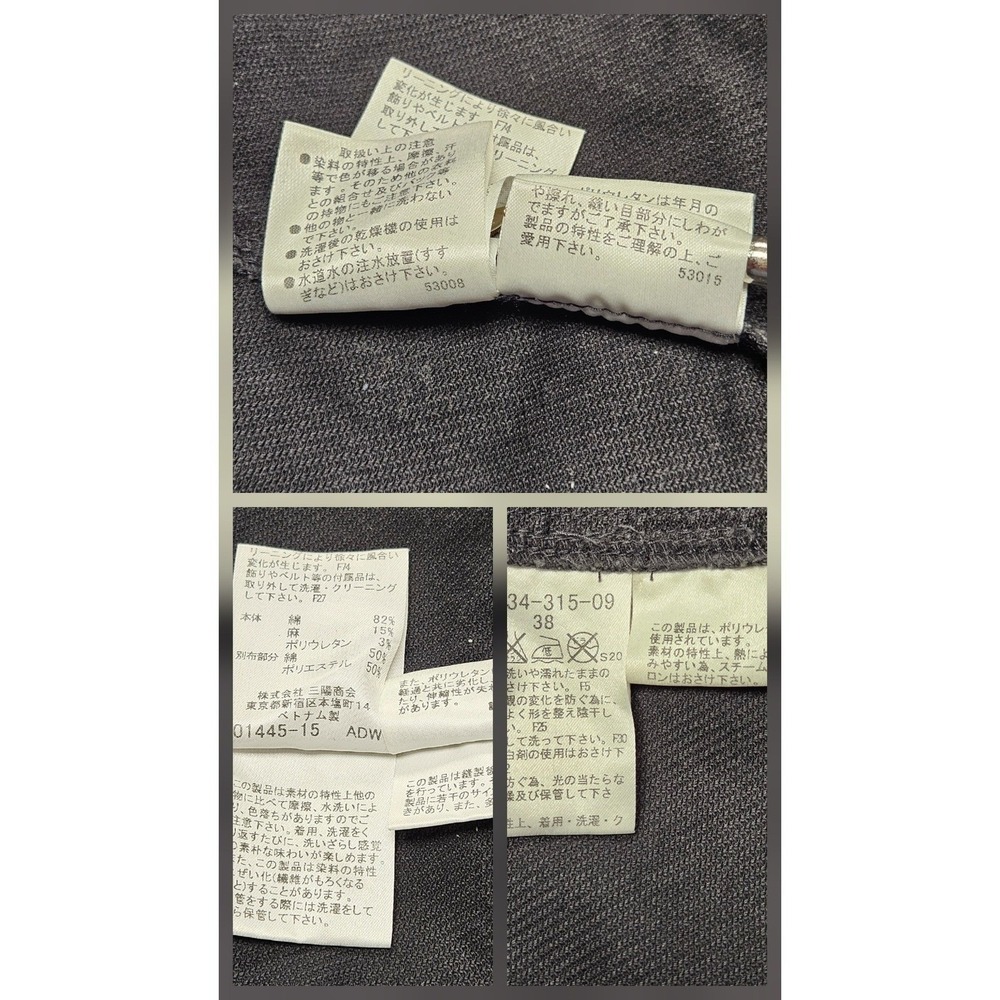 リーニングにより徐々に風合い
変化が生じます。 F74
飾りやベルト
取り外して
して下
付属品は、
リーニング
取扱い上の注意
●染料の特性上、摩擦、汗
等で色が移る場合があり
ます。そのため他の衣料
との組合せ及びバッグ等
の持物にもご注意下さい。
●他の物と一緒に洗わない
で下さい。
●洗濯後の乾燥機の使用は
おさけ下さい。
●水道水の注水放置(すす
ぎなど)はおさけ下さい。
53008
ポリウレタンは年月の
や擦れ、縫い目部分にしわが
でますがご了承下さい。
製品の特性をご理解の上、ご
愛用下さい。
53015
リーニングにより徐々に風合い
変化が生じます。 F74
飾りやベルト等の付属品は、
取り外して洗濯・クリーニング
して下さい。 F27
本体 綿 82%
麻 15%
ポリウレタン 3%
別布部分 綿 50%
ポリエステル 50%
株式会社 三陽商会
東京都新宿区本塩町14
ベトナム製
01445-15 ADW
また、ポリウレタン
経過と共に劣化し
たり、伸縮性が失わ
があります。
この製品は素材の特性上他の
物に比べて摩擦、水洗いによ
り、色落ちがありますのでご
注意下さい。着用、洗濯をく
り返すたびに、洗いざらし感覚
の素朴な味わいが楽しめます。
また、この製品は染料の特性
ぜい化(繊維がもろくなる
と)することがあります。
管をする際には洗濯をして
ら保管して下さい。
この製品は縫製後
を行っています。
製品に若干のサイ
きがあり、また、
34-315-09
38
低
S20
洗いや濡れたままの
さけ下さい。 F5
観の変化を防ぐ為に、
よく形を整え陰干し
い。 F25
して洗って下さい。 F30
白剤の使用はおさけ下
防ぐ為、光の当たらな
燥及び保管して下さ
性上、着用・洗濯・ク
この製品は、ポリウレ
使用されています。
素材の特性上、熱によ
みやすい為、スチーム
ロンはおさけ下さい。